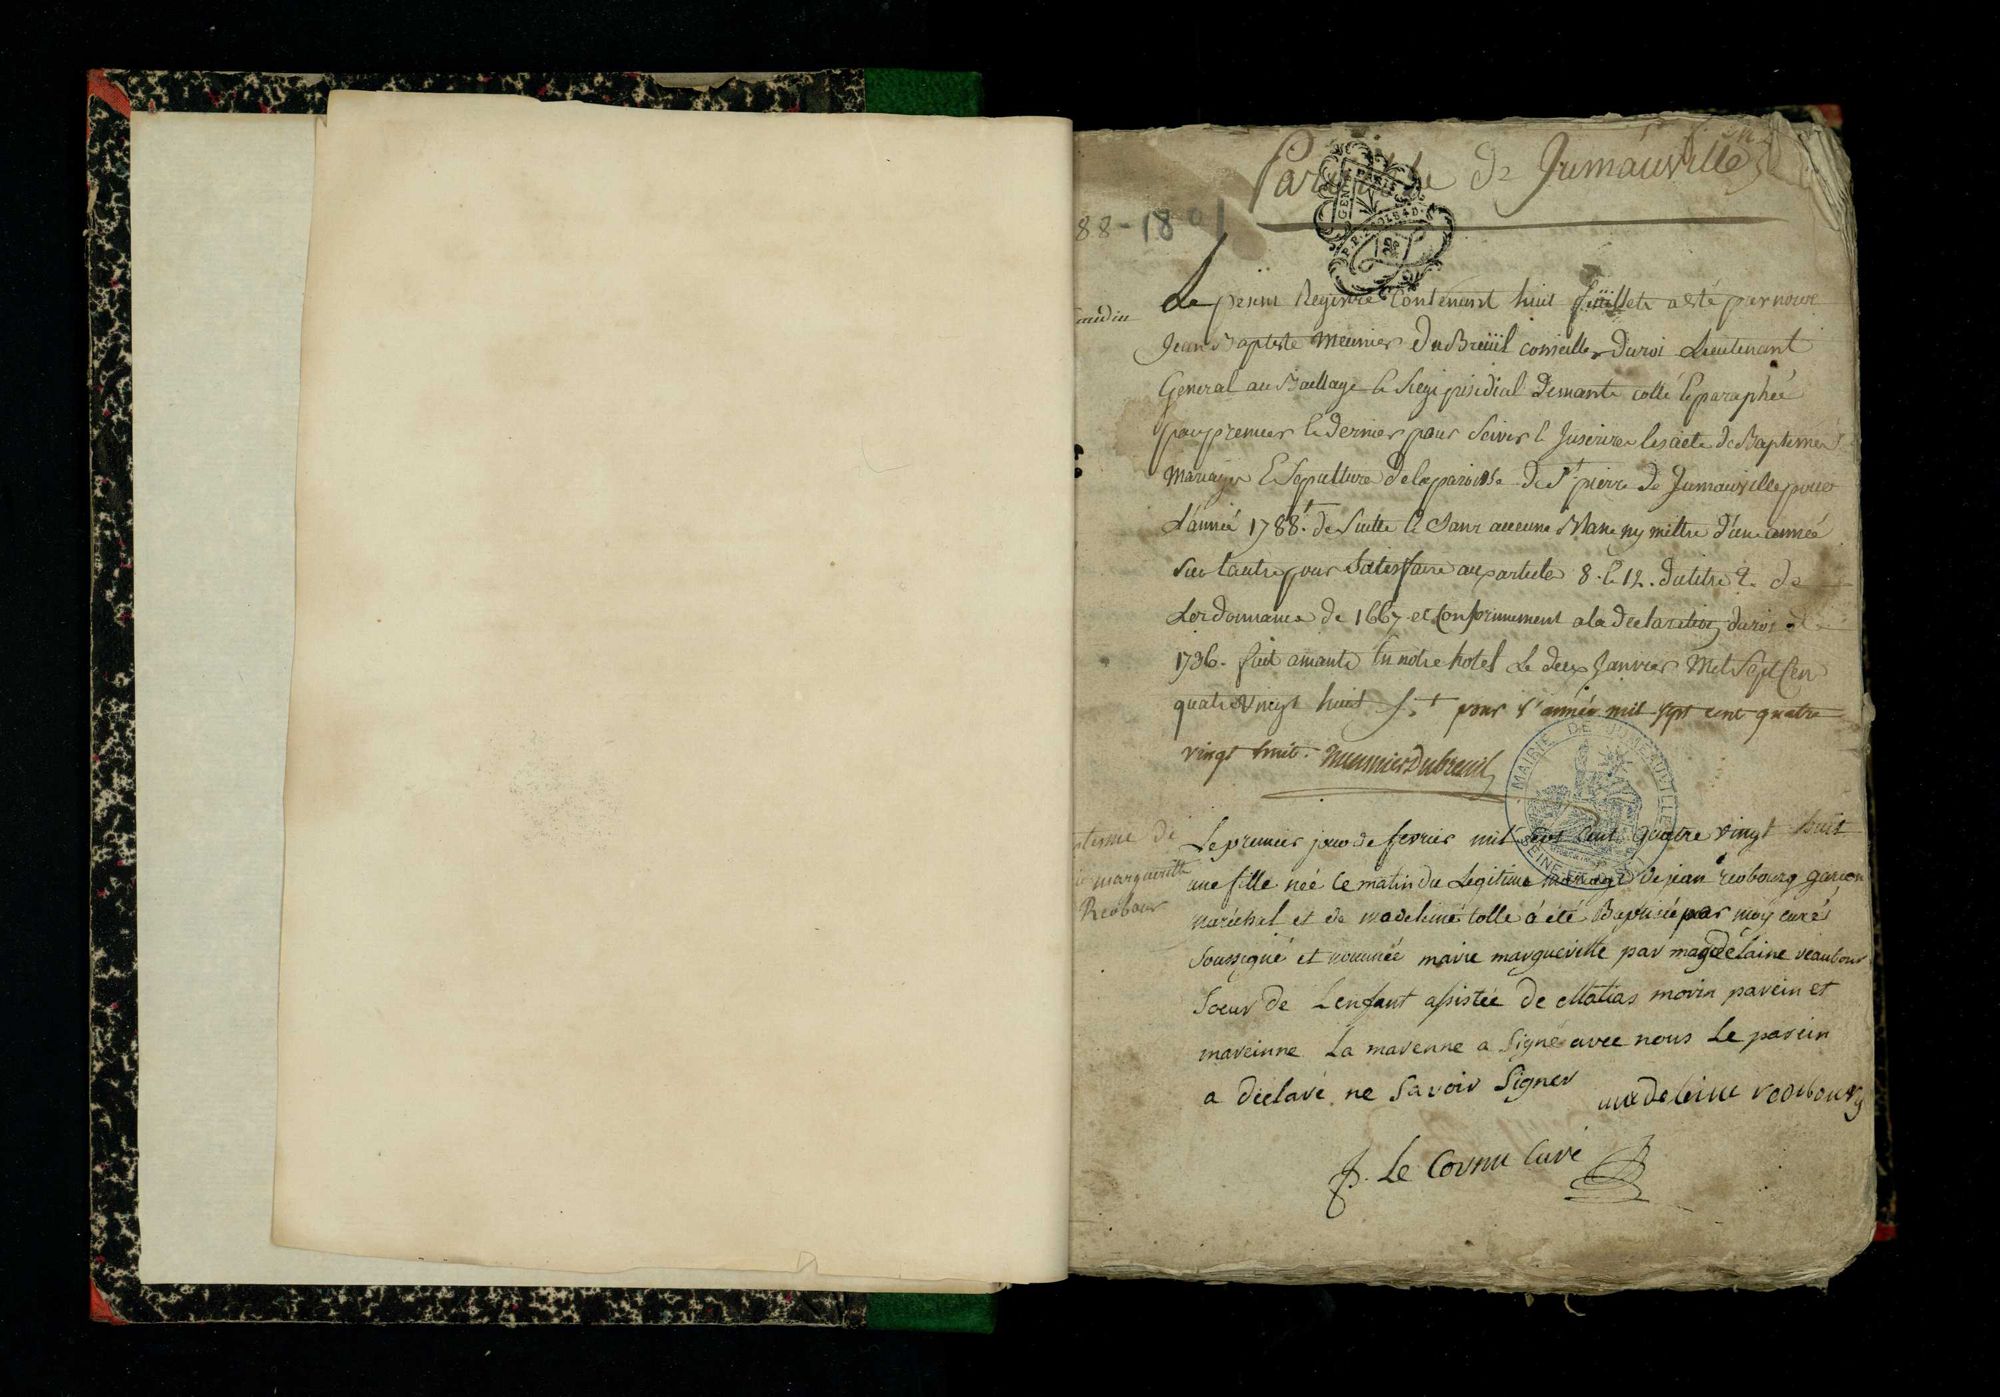 Paroisse de Jumauville
88-1801
Le present Registre Contenant huit feüillets a esté par nous
Jean Baptiste Meunier DuBreüil conseiller du roi Lieutenant
General au Baillage & siege presidial de mante cotté & paraphée
par premier & dernier pour servir & Inscrire les acte de Baptemes
Mariages & Sepulture de la paroisse de St pierre de Jumauville pour
L'année 1788 + de suitte & sans aucune Blanc ny mettre d'une année
sur l'autre pour satisfaire aux articles 8. & 12. du titre 2. de
Lordonnance de 1667 et Conformement a la declaration du roi de
1736. fait a mante En notre hotel Le deux Janvier Mil Sept Cen
quatre Vingt huit + pour l'année mil sept cent quatre
vingt huit. Meunier Dubreuil
MAIRIE DE JUMEAUVILLE
SEINE-ET-OISE
GEN. PARIS
margueritte
Reobour
Le premier jour de fevrier mil sept cent quatre vingt huit
une fille neé ce matin du Legitime mariage de jean reobourg garcon
maréchal et de madeleine colle á été Baptisée par moy curé
soussigné et nommée marie margueritte par magdelaine reaubour
soeur de Lenfant assistée de Matias morin parein et
mareinne La marenne a signé avec nous Le parein
a déclaré ne savoir signer madeleine reobourg
J. Le Cornu Curé